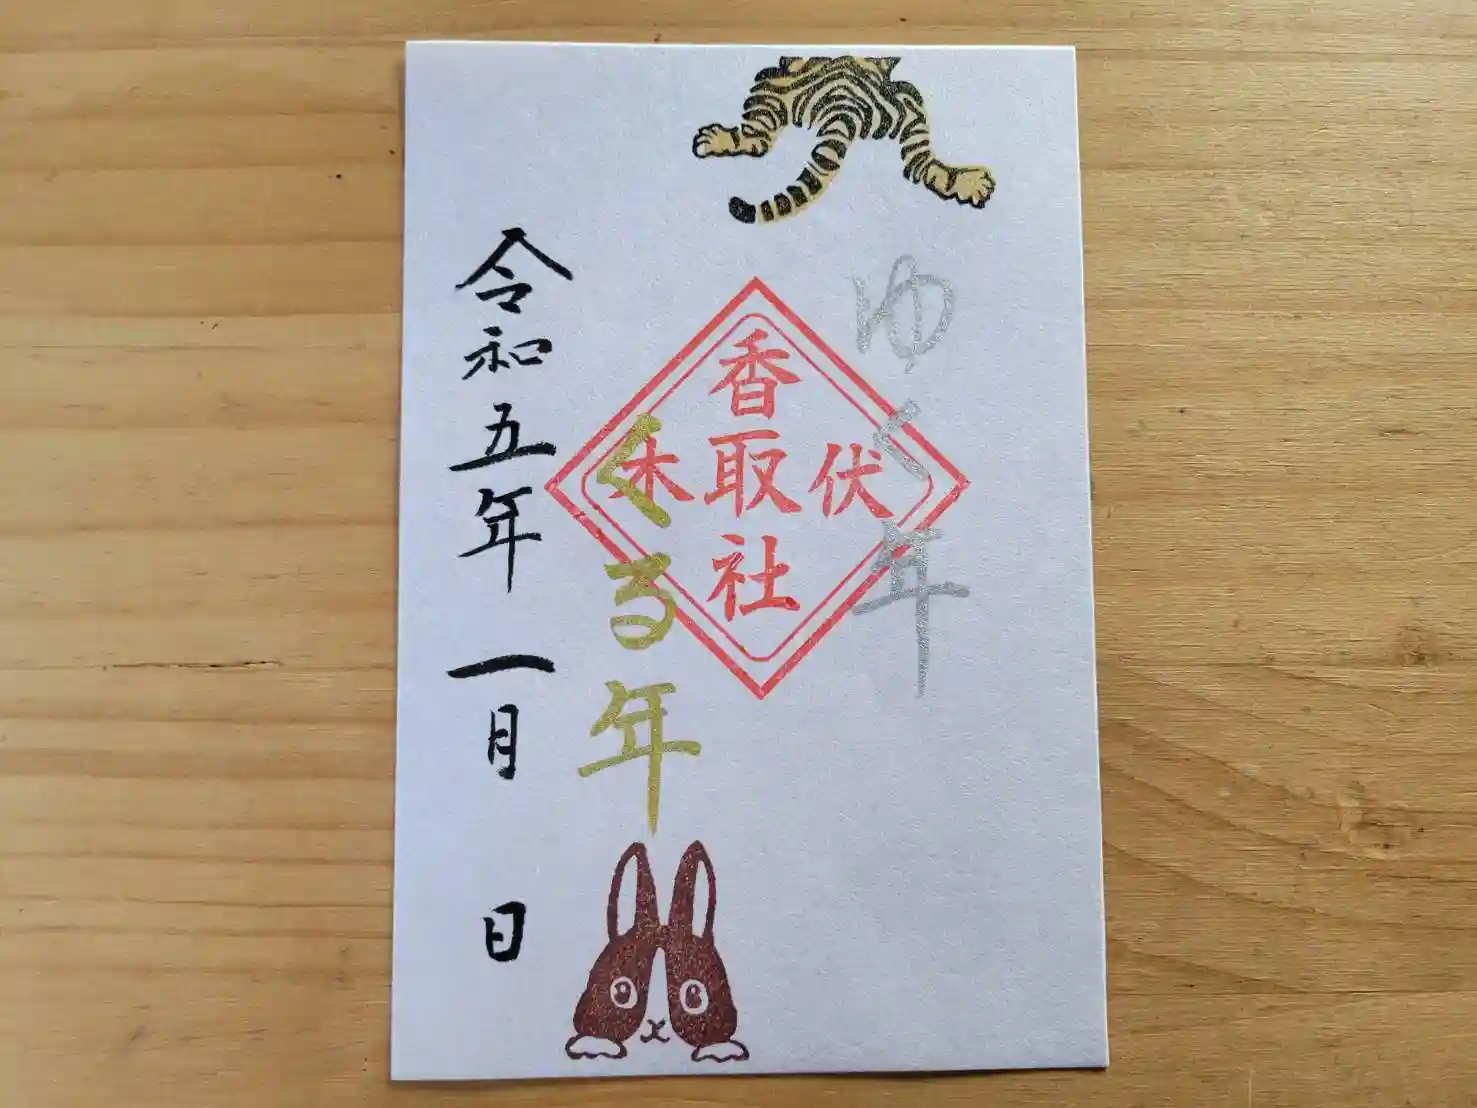 ゆく年
伏木
香取社
くる年
令和五年一月 日